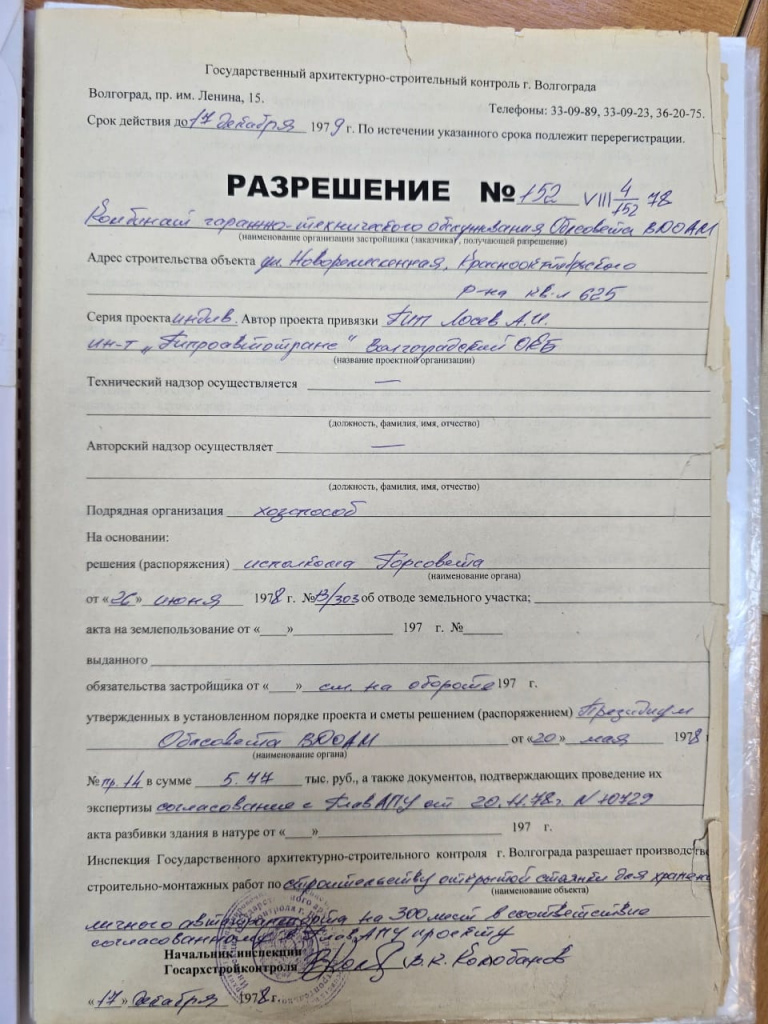 Государственный архитектурно-строительный контроль г. Волгограда
Волгоград, пр. им. Ленина, 15.
Телефоны: 33-09-89, 33-09-23, 36-20-75.
Срок действия до 17 декабря 1979 г. По истечении указанного срока подлежит перерегистрации.
РАЗРЕШЕНИЕ № 152 VIII 4/152 78
Комбинат гаражно-технического обслуживания Облсовета ВДОАМ
(наименование организации застройщика (заказчика), получающей разрешение)
Адрес строительства объекта ул. Новоремесленная, Краснооктябрьского
р-на кв-л 625
Серия проекта индив. Автор проекта привязки ГИП Лосев А.И.
ин-т „Гипроавтотранс" Волгоградский ОКБ
(название проектной организации)
Технический надзор осуществляется —
(должность, фамилия, имя, отчество)
Авторский надзор осуществляет —
(должность, фамилия, имя, отчество)
Подрядная организация хозспособ
На основании:
решения (распоряжения) исполкома Горсовета
(наименование органа)
от «26» июня 1978 г. № 13/303 об отводе земельного участка;
акта на землепользование от «___» 197 г. №
выданного
обязательства застройщика от «___» см. на обороте 197 г.
утвержденных в установленном порядке проекта и сметы решением (распоряжением) Президиум
Облсовета ВДОАМ от «20» мая 1978
(наименование органа)
№ пр. 14 в сумме 5.77 тыс. руб., а также документов, подтверждающих проведение их
экспертизы согласование с ГлавАПУ от 20.11.78г. N 10729
акта разбивки здания в натуре от «___» 197 г.
Инспекция Государственного архитектурно-строительного контроля г. Волгограда разрешает производство
строительно-монтажных работ по строительству открытой стоянки для хранен
(наименование объекта)
личного автотранспорта на 300 мест в соответствие
согласованному в ГлавАПУ проекту
Начальник инспекции
Госархстройконтроля В.К. Колобанов
«17» декабря 1978 г.